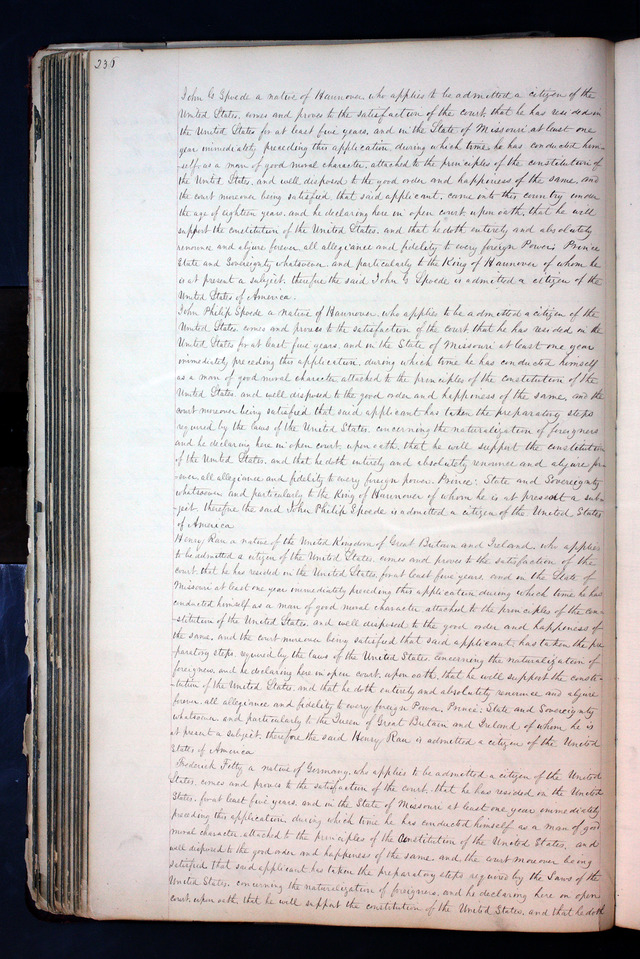 230
John G Spoede a native of Hannover who applies to be admitted a citizen of the
United States, comes and proves to the satisfaction of the court, that he has resided in
the United States for at least five years, and in the State of Missouri at least one
year immediately preceding this application, during which time he has conducted him-
-self as a man of good moral character, attached to the principles of the constitution of
the United States, and well disposed to the good order and happiness of the same, and
the court moreover being satisfied, that said applicant, came into this country under
the age of eighteen years, and he declaring here in open court upon oath, that he will
support the constitution of the United States, and that he doth entirely and absolutely
renounce and abjure forever all allegiance and fidelity to every foreign Power, Prince
State and Sovereignty whatsoever, and particularly to the King of Hannover of whom he
is at present a subject, therefore the said John G Spoede is admitted a citizen of the
United States of America.
John Philip Spoede a native of Hannover, who applies to be admitted a citizen of the
United States, comes and proves to the satisfaction of the court that he has resided in the
United States for at least five years, and in the State of Missouri at least one year
immediately preceding this application, during which time he has conducted himself
as a man of good moral character attached to the principles of the constitution of the
United States, and well disposed to the good order and happiness of the same, and the
court moreover being satisfied that said applicant has taken the preparatory steps
required by the laws of the United States, concerning the naturalization of foreigners
and he declaring here in open court, upon oath, that he will support the constitution
of the United States, and that he doth entirely and absolutely renounce and abjure for-
-ever all allegiance and fidelity to every foreign power, Prince, State and Sovereignty
whatsoever and particularly to the King of Hannover of whom he is at present a sub-
-ject, therefore the said John Philip Spoede is admitted a citizen of the United States
of America
Henry Rau a native of the United Kingdom of Great Britain and Ireland, who applies
to be admitted a citizen of the United States, comes and proves to the satisfaction of the
court, that he has resided in the United States, for at least five years, and in the State of
Missouri at least one year immediately preceding this application during which time he has
conducted himself as a man of good moral character attached to the principles of the con-
-stitution of the United States, and well disposed to the good order and happiness of
the same, and the court moreover being satisfied that said applicant, has taken the pre
paratory steps, required by the laws of the United States, concerning the naturalization of
foreigners, and he declaring here in open court, upon oath, that he will support the consti-
-tution of the United States, and that he doth entirely and absolutely renounce and abjure
forever, all allegiance and fidelity to every foreign Power, Prince, State and Sovereignty
whatsoever and particularly to the Queen of Great Britain and Ireland of whom he is
at present a subject, therefore the said Henry Rau is admitted a citizen of the United
States of America
Frederick Fetty a native of Germany, who applies to be admitted a citizen of the United
States, comes and proves to the satisfaction of the court, that he has resided on the United
States, for at least five years, and in the State of Missouri at least one year immediately
preceding this application, during which time he has conducted himself as a man of good
moral character, attached to the principles of the Constitution of the United States, and
well disposed to the good order and happiness of the same, and the court moreover being
satisfied that said applicant has taken the preparatory steps required by the Laws of the
United States, concerning the naturalization of foreigners, and he declaring here on open
court, upon oath, that he will support the constitution of the United States, and that he doth